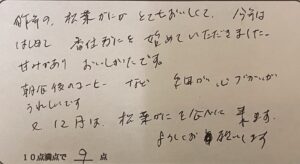 昨年の、松葉がにが とてもおいしくて、今年は
はじめて 香住がにを 始めていただきました。
甘みがあり おいしかったです。
朝食後のコーヒー など 細かい心づかいが
うれしいです
又 12月は、松葉がにを 食べに 来ます。
よろしくお願いします
10点満点で 9 点